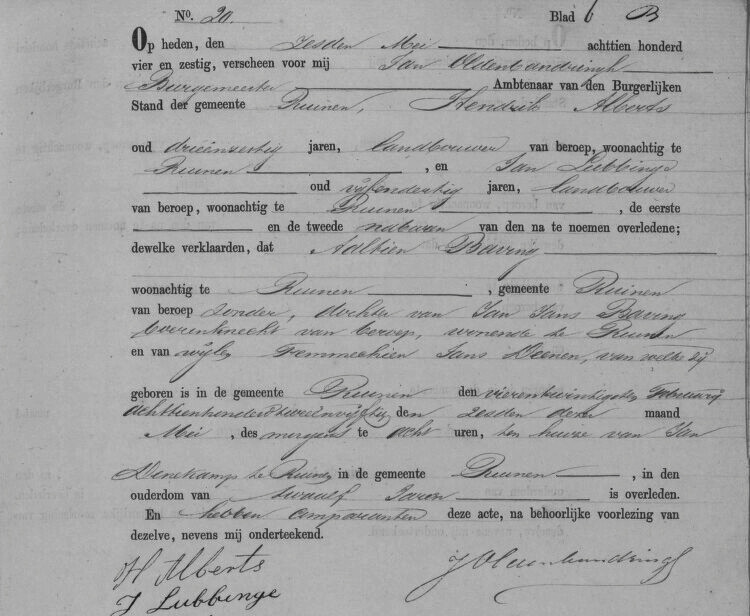 No. 20. Blad 6 B
Op heden, den Zesden Mei achttien honderd
vier en zestig, verscheen voor mij Jan Oldenbandringh
Burgemeester Ambtenaar van den Burgerlijken
Stand der gemeente Ruinen, Hendrik Alberts
oud drieënzestig jaren, landbouwer van beroep, woonachtig te
Ruinen, en Jan Lubbinge
oud vijfendertig jaren, landbouwer
van beroep, woonachtig te Ruinen, de eerste
en de tweede naburen van den na te noemen overledene;
dewelke verklaarden, dat Aaltien Baving
woonachtig te Ruinen, gemeente Ruinen
van beroep zonder, dochter van Jan Jans Baving
boerenknecht van beroep, wonende te Ruinen
en van wijlen Femmechien Jans Deenen, van welke zij
geboren is in de gemeente Ruinen den vierentwintigsten Februarij
achttienhonderd tweeënvijftig den zesden dezer maand
Mei, des morgens te acht uren, ten huize van Jan
Denekamp te Ruinen in de gemeente Ruinen, in den
ouderdom van twaalf Jaren is overleden.
En hebben comparanten deze acte, na behoorlijke voorlezing van
dezelve, nevens mij onderteekend.
H Alberts
J Lubbinge